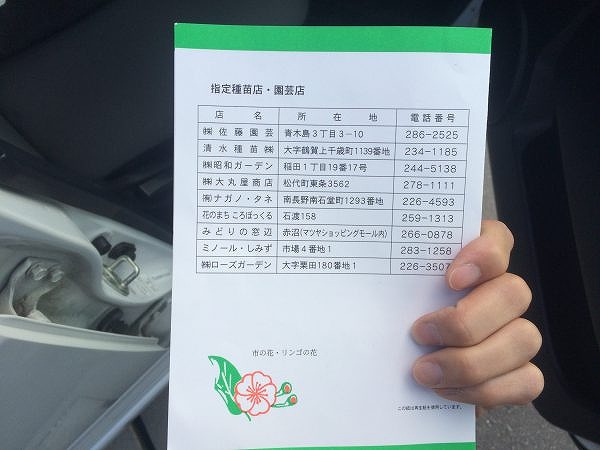 指定種苗店・園芸店
店名 所在地 電話番号
㈱佐藤園芸 青木島3丁目3−10 286−2525
清水種苗㈱ 大字鶴賀上千歳町1139番地 234−1185
㈱昭和ガーデン 稲田1丁目19番17号 244−5138
㈱大丸屋商店 松代町東条3562 278−1111
㈲ナガノ・タネ 南長野南石堂町1293番地 226−4593
花のまち ころぼっくる 石渡158 259−1313
みどりの窓辺 赤沼(マツヤショッピングモール内) 266−0878
ミノール・しみず 市場4番地1 283−1258
㈱ローズガーデン 大字栗田180番地1 226−3507
市の花・リンゴの花
この紙は再生紙を使用しています。